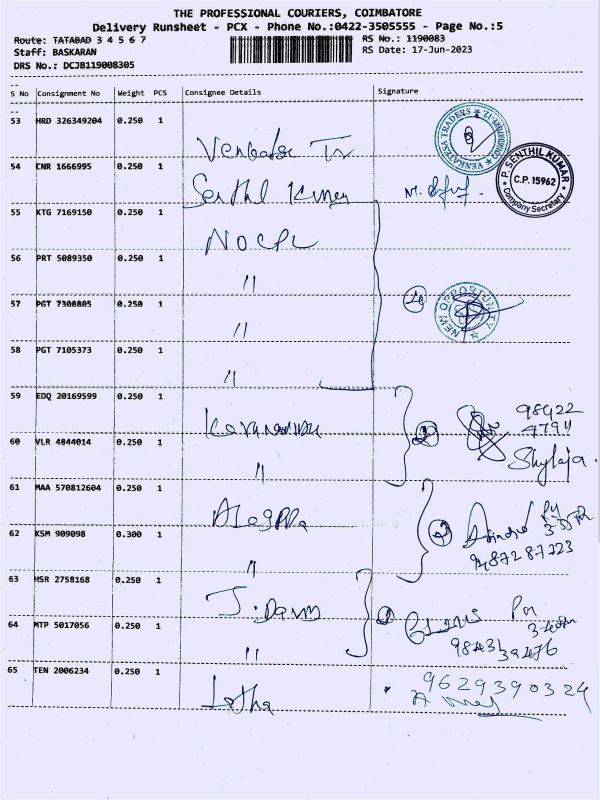 THE PROFESSIONAL COURIERS, COIMBATORE
Delivery Runsheet - PCX - Phone No.:0422-3505555 - Page No.:5
Route: TATABAD 3 4 5 6 7
RS No.: 1190083
Staff: BASKARAN
RS Date: 17-Jun-2023
DRS No.: DCJB119008305
S No Consignment No Weight PCS Consignee Details Signature
53 HRD 326349204 0.250 1
VENKATESA TRADERS ★ COIMBATORE-12 ★
54 CNR 1666995 0.250 1 Senthil Kumar
P. SENTHIL KUMAR
C.P. 15962
Company Secretary
55 KTG 7169150 0.250 1 NOCPL
56 PRT 5089350 0.250 1 "
57 PGT 7308805 0.250 1 "
NEW OPPORTUNITY
58 PGT 7105373 0.250 1 "
59 EDQ 20169599 0.250 1
98422
47911
60 VLR 4844014 0.250 1 "
Shylaja
61 MAA 570812604 0.250 1
62 KSM 909098 0.300 1 "
9487287223
63 HSR 2758168 0.250 1
64 MTP 5017056 0.250 1 "
9843139476
65 TEN 2006234 0.250 1 Latha
9629390324